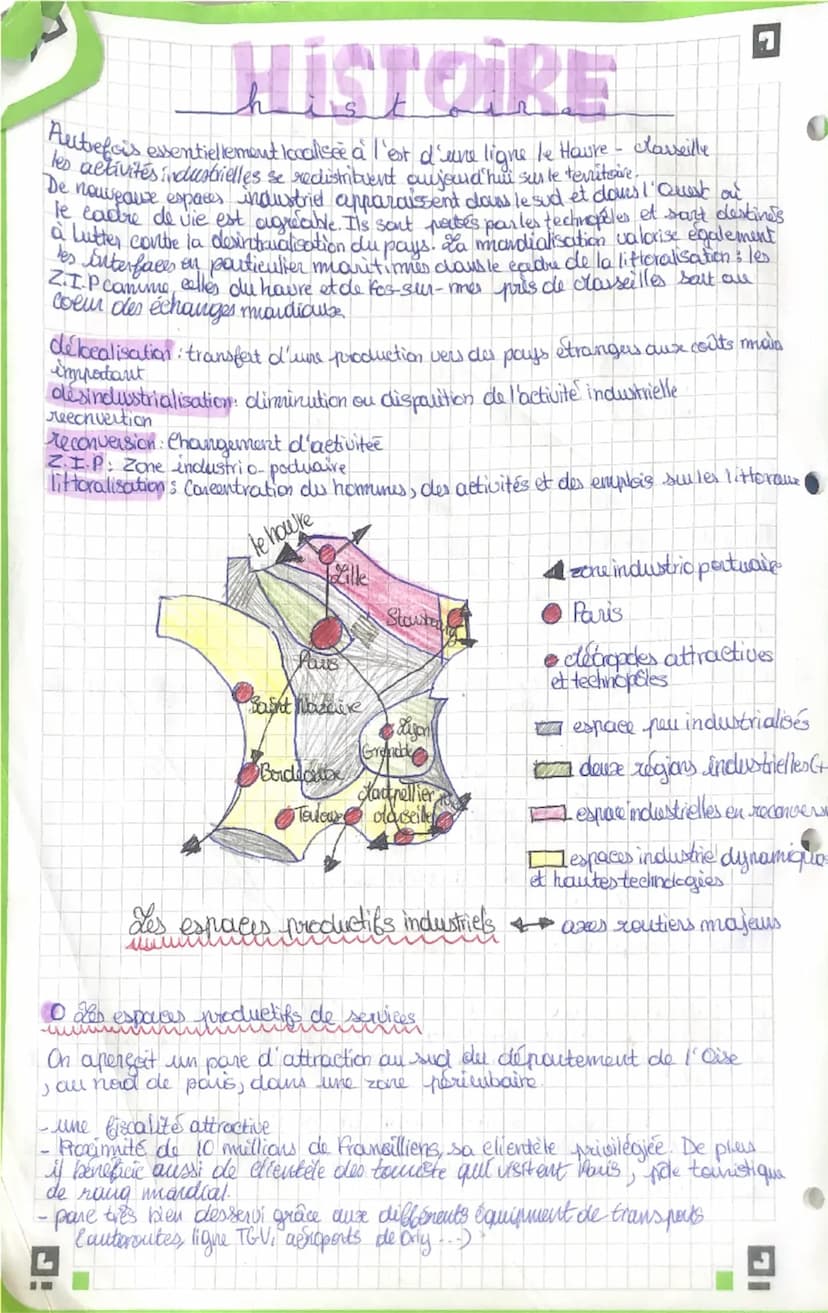 HISTOIRE
histoire
Autrefois essentiellement localisée à l'est d'une ligne le Havre - Marseille
les activités industrielles se redistribuent aujourd'hui sur le territoire.
De nouveaux espaces industriel apparaissent dans le sud et dans l'Ouest où
le cadre de vie est agréable. Ils sont portés par les technopôles et sont destinés
à lutter contre la desindrualisation du pays. La mondialisation valorise également
les interfaces en particulier maritimes dans le cadre de la littoralisation : les
Z.I.P comme celles du havre et de Fos-sur-mer près de Marseilles sont au
coeur des échanges mondiaux.
délocalisation : transfert d'une production vers des pays étrangers aux coûts moin
important
désindustrialisation : diminution ou disparition de l'activité industrielle
reconvertion
reconversion : Changement d'activitée
Z.I.P : Zone industrio-portuaire
littoralisation : Concentration des hommes, des activités et des emplois sur les littoraux
le havre
Lille
Strasbourg
Paris
Saint Nazaire
Lyon
Grenoble
Bordeaux
Montpellier
Toulouse
Marseille
zone industrio portuaire
Paris
Métropoles attractives
et technopôles
espace peu industrialisés
deux régions industrielles (+
espace industrielles en reconvers
espaces industriel dynamique
et hautes technologies
Les espaces productifs industriels
axes routiers majeurs
Les espaces productifs de services
On aperçoit un parc d'attraction au sud du département de l'Oise
, au nord de paris, dans une zone périurbaine.
- une fiscalité attractive
- Proximité de 10 millions de Franciliens, sa clientèle privilégiée. De plus
il bénéficie aussi de clientèle des touriste qui visitent Paris, pôle touristique
de rang mondial.
- parc très bien desservi grâce aux différents équipment de transports
(autoroutes, ligne TGV, aéroports de Orly ...)